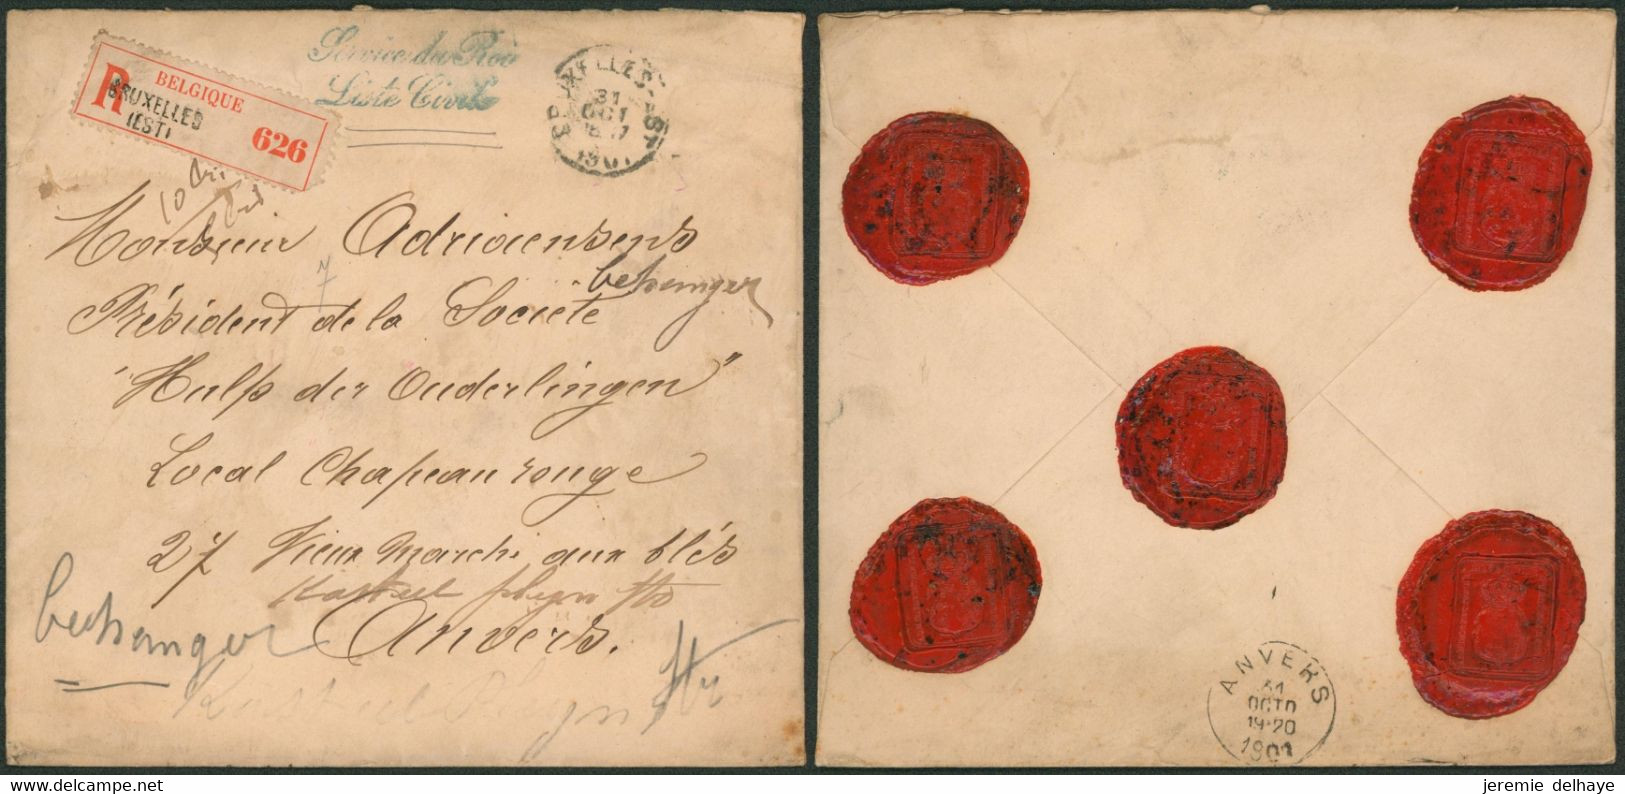 Service du Roi
Liste Civile
R
BELGIQUE
BRUXELLES
(EST)
626
BRUXELLES
31
OCT
1901
10
Monsieur Adriaensens
7
behanger
Président de la Société
"Hulp der Ouderlingen"
Local Chapeau rouge
27 Vieux Marché aux blés
behanger
Anvers.
ANVERS
31
OCTO
19-20
1901
delcampe.net
jeremie delhaye